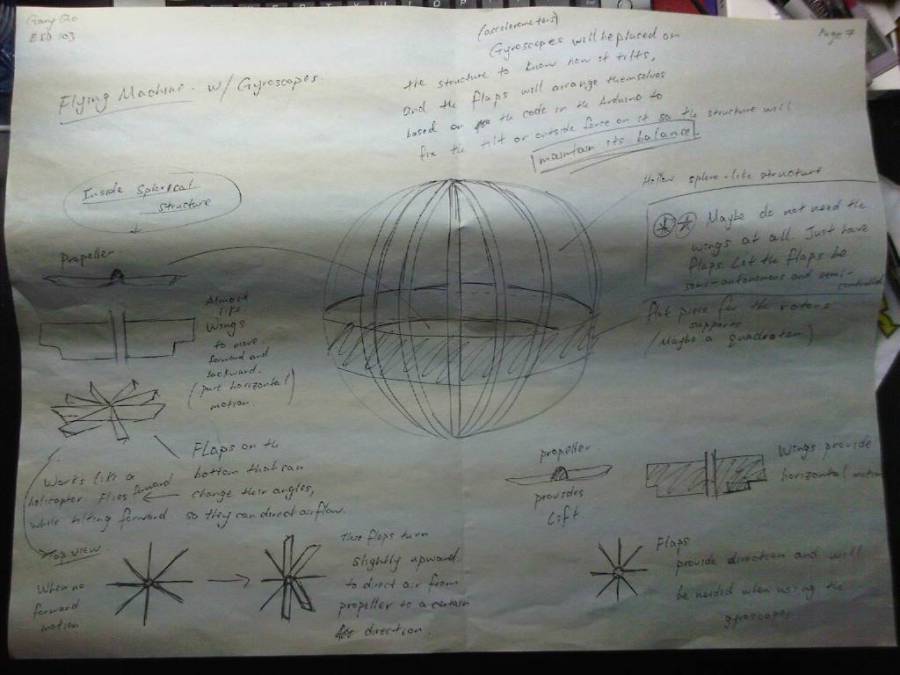 Gary Go
ESD 103
Page 7
Flying Machine w/ Gyroscopes
(accelerometers)
Gyroscopes will be placed on
the structure to know how it tilts,
and the flaps will arrange themselves
based on the code in the Arduino to
fix the tilt or outside force on it so the structure will
maintain its balance.
Inside Spherical
structure
Propeller
Almost
like
Wings
to move
forward and
backward.
(pure horizontal)
motion.
Flaps on the
bottom that can
change their angles,
so they can direct airflow.
Works like a
helicopter Flies forward
while tilting forward
Top View
When no
forward
motion
These flaps turn
slightly upward
to direct air from
propeller to a certain
direction.
Hollow sphere-like structure
Maybe do not need the
wings at all. Just have
flaps. Let the flaps be
semi-autonomous and semi-
controlled
flat piece for the rotors
support
(Maybe a quadrotor)
propeller
provides
Lift
Wings provide
horizontal motion
Flaps
provide direction and will
be needed when using the
gyroscope.